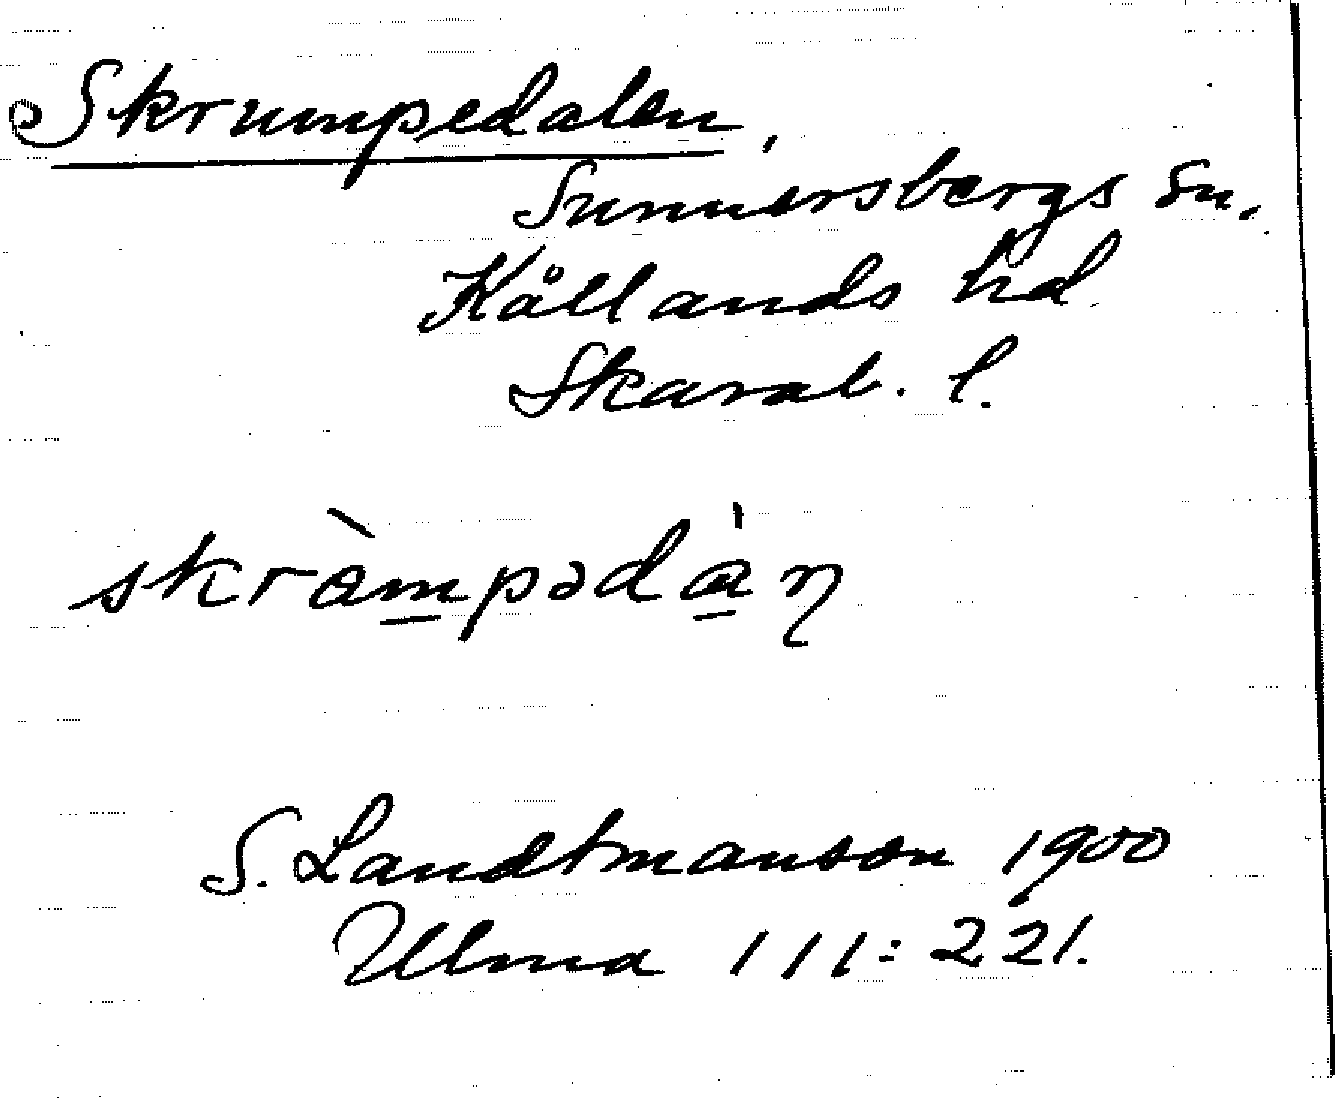 Skrumpedalen,
Sunnersbergs sn.
Kållands hd.
Skarab. l.
skrɵ̀mpədáṉ
S. Landtmanson 1900
Ulma 111:221.